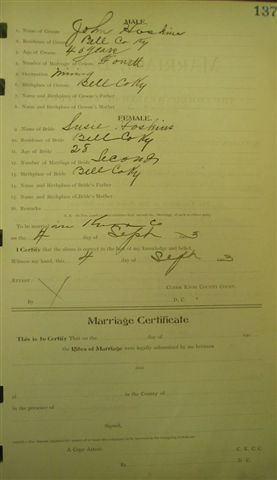 137
MALE.
1. Name of Groom John Hoskins
2. Residence of Groom Bell Co Ky
3. Age of Groom 40 years
4. Number of Marriage of Groom Fourth
5. Occupation Mining
6. Birthplace of Groom Bell Co Ky
7. Name and Birthplace of Groom's Father
8. Name and Birthplace of Groom's Mother
FEMALE.
9. Name of Bride Susie Hoskins
10. Residence of Bride Bell Co Ky
11. Age of Bride 28
12. Number of Marriage of Bride Second
13. Birthplace of Bride Bell Co Ky
14. Name and Birthplace of Bride's Father
15. Name and Birthplace of Bride's Mother
16. Remarks
To be married Knox Co
on the 4 day of Sept 3
I Certify that the above is correct to the best of my knowledge and belief.
Witness my hand, this 4 day of Sept 3
Attest:
Clerk Knox County Court.
By D. C.
Marriage Certificate
This is to Certify That on the day of
the Rites of Marriage were legally solemnized by me between
and
at in the County of
in the presence of
Signed,
A Copy Attest: C. K. C. C.
By D. C.